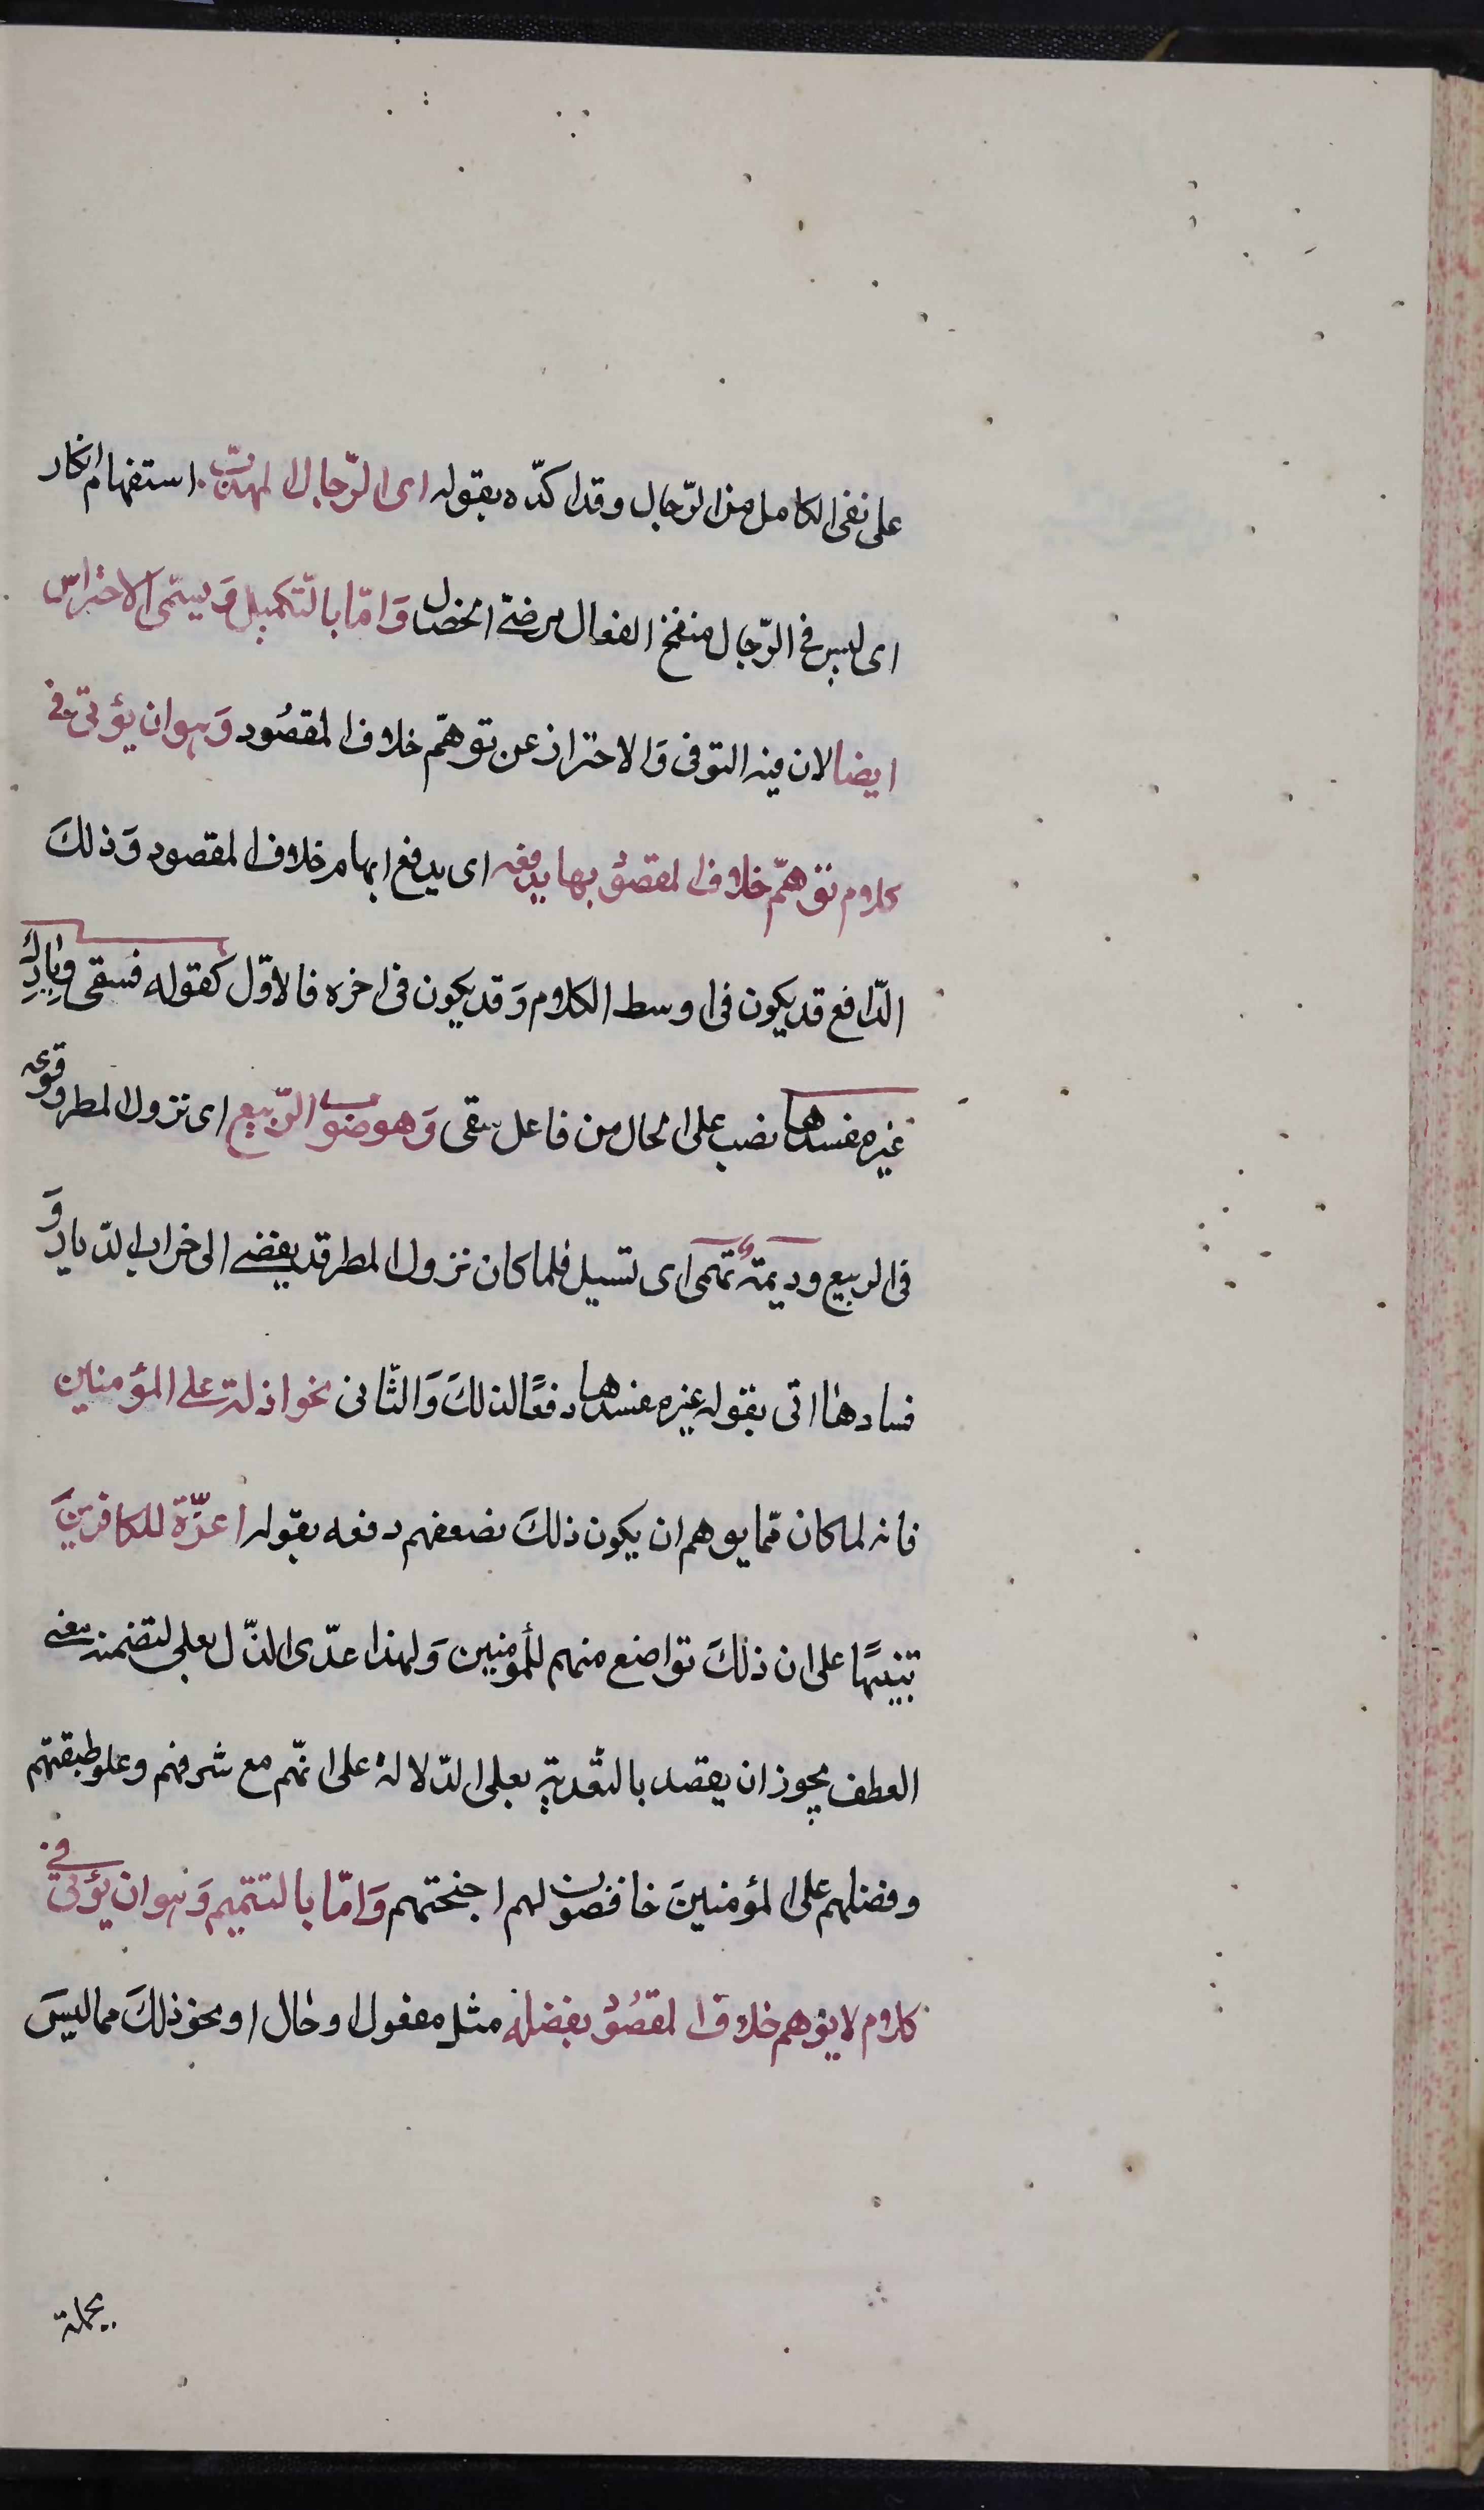 على نفى الكامل من الرّجال وقد اكدّه بقوله اى الرّجال المهذّب استفهام انكار
اى ليس فى الرّجال منقح الفعال مرضىّ الخصال وَامّا بالتّكميل وَيسمّى الاحتراس
ايضا لان فيه التوقى وَالاحتراز عن توهّم خلاف المقصُود وَهو ان يؤتى فى
كلام توهّم خلاف المقصود بما يدفعه اى يدفع ايهام خلاف المقصود وَذلكَ
الدّافع قد يكون فى اوسط الكلام وَقد يكون فى اخره فالاوّل كقوله فسقى دِيارك
غيره مفسدها نصب على الحال من فاعل سقى وَهو صوب الرّبيع اى نزول المطر وقوعه
فى الربيع وديمةٌ تهمى اى تسيل فلما كان نزول المطر قد يفضى الى خراب الدّيار وَ
فسادها اتى بقوله غيره مفسدها دفعًا لذلكَ وَالثّانى نحو اذلة على المؤمنين
فانه لما كان ممّا يوهم ان يكون ذلكَ لضعفهم دفعه بقوله اعزّة للكافرينَ
تنبيهًا على ان ذلكَ تواضع منهم للمؤمنين وَلهذا عدّى الذّل بعلى لتضمنه معنى
العطف يجوز ان يقصد بالتّعدية بعلى الدّلالة على انّهم مع شرفهم وعلو طبقتهم
وفضلهم على المؤمنينَ خافضون لهم اجنحتهم وَامّا بالتتميم وَهو ان يؤتى فى
كلام لا يوهم خلاف المقصُود بفضلة مثل مفعول او حال او نحو ذلكَ مما ليسَ
بجملة